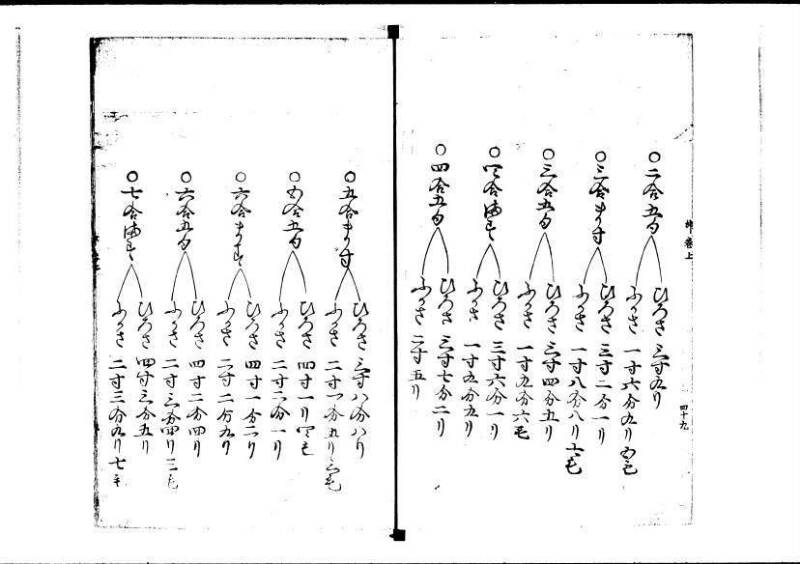 卷上
四十九
○二合五勺
ひろさ 三寸九リ
ふかさ 一寸六分九リ五毛
○三合ます
ひろさ 三寸二分一リ
ふかさ 一寸八分八リ六毛
○三合五勺
ひろさ 三寸四分五リ
ふかさ 一寸九分六毛
○四合ます
ひろさ 三寸六分一リ
ふかさ 一寸九分九リ
○四合五勺
ひろさ 三寸七分二リ
ふかさ 二寸五リ
○五合ます
ひろさ 三寸八分八リ
ふかさ 二寸一分五リ三毛
○五合五勺
ひろさ 四寸一リ四毛
ふかさ 二寸二分一リ
○六合ます
ひろさ 四寸一分二リ
ふかさ 二寸二分九リ
○六合五勺
ひろさ 四寸二分四リ
ふかさ 二寸三分四リ三毛
○七合ます
ひろさ 四寸三分五リ
ふかさ 二寸三分九リ七毛